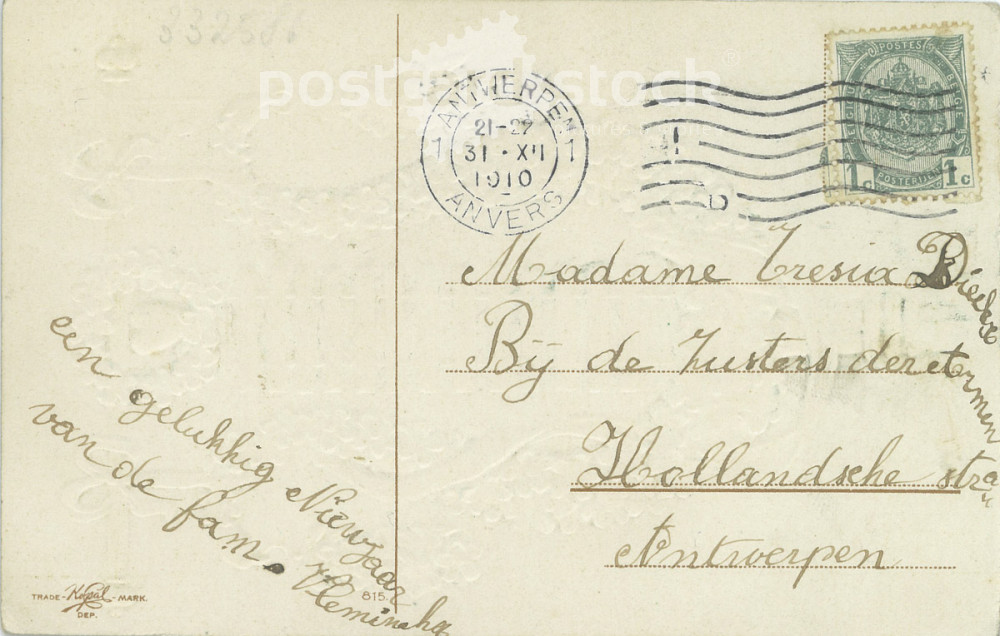 332511
postcardstock
ANTWERPEN
1 21-22 1
31 · XII
1910
ANVERS
POSTES
BELGIQUE
POSTERIJEN
1c 1c
Madame Tresia
Bij de Zusters der Armen
Hollandsche straat
Antwerpen
een gelukkig Nieuwjaar
van de fam. Vleminckx
TRADE - Kopal - MARK.
DEP.
815.